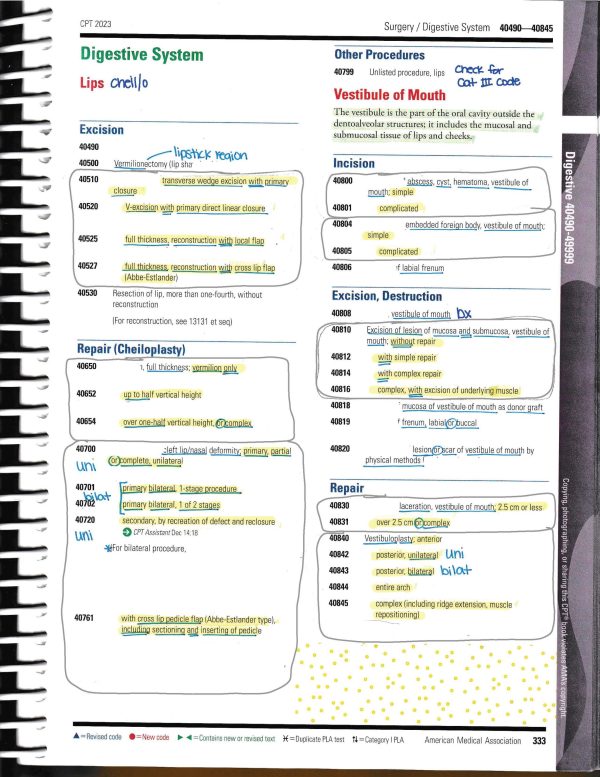 CPT 2023
Surgery / Digestive System 40490—40845
Digestive System
Lips cheil/o
Excision
40490
lipstick region
40500 Vermilionectomy (lip sha
40510 transverse wedge excision with primary
closure
40520 V-excision with primary direct linear closure
40525 full thickness, reconstruction with local flap
40527 full thickness, reconstruction with cross lip flap
(Abbe-Estlander)
40530 Resection of lip, more than one-fourth, without
reconstruction
(For reconstruction, see 13131 et seq)
Repair (Cheiloplasty)
40650 , full thickness; vermilion only
40652 up to half vertical height
40654 over one-half vertical height, or complex
40700 cleft lip/nasal deformity; primary, partial
uni or complete, unilateral
40701 primary bilateral, 1-stage procedure
bilat
40702 primary bilateral, 1 of 2 stages
40720 secondary, by recreation of defect and reclosure
uni CPT Assistant Dec 14:18
*For bilateral procedure,
40761 with cross lip pedicle flap (Abbe-Estlander type),
including sectioning and inserting of pedicle
Other Procedures
40799 Unlisted procedure, lips check for
Cat III code
Vestibule of Mouth
The vestibule is the part of the oral cavity outside the
dentoalveolar structures; it includes the mucosal and
submucosal tissue of lips and cheeks.
Incision
40800 abscess, cyst, hematoma, vestibule of
mouth; simple
40801 complicated
40804 embedded foreign body, vestibule of mouth;
simple
40805 complicated
40806 f labial frenum
Excision, Destruction
40808 , vestibule of mouth bx
40810 Excision of lesion of mucosa and submucosa, vestibule of
mouth; without repair
40812 with simple repair
40814 with complex repair
40816 complex, with excision of underlying muscle
40818 mucosa of vestibule of mouth as donor graft
40819 f frenum, labial or buccal
40820 lesion or scar of vestibule of mouth by
physical methods
Repair
40830 laceration, vestibule of mouth; 2.5 cm or less
40831 over 2.5 cm or complex
40840 Vestibuloplasty; anterior
40842 posterior, unilateral uni
40843 posterior, bilateral bilat
40844 entire arch
40845 complex (including ridge extension, muscle
repositioning)
Digestive 40490-49999
Copying, photographing, or sharing this CPT® book violates AMA's copyright.
▲=Revised code ●=New code ▶ ◀=Contains new or revised text ⋊=Duplicate PLA test ⇅=Category I PLA American Medical Association 333